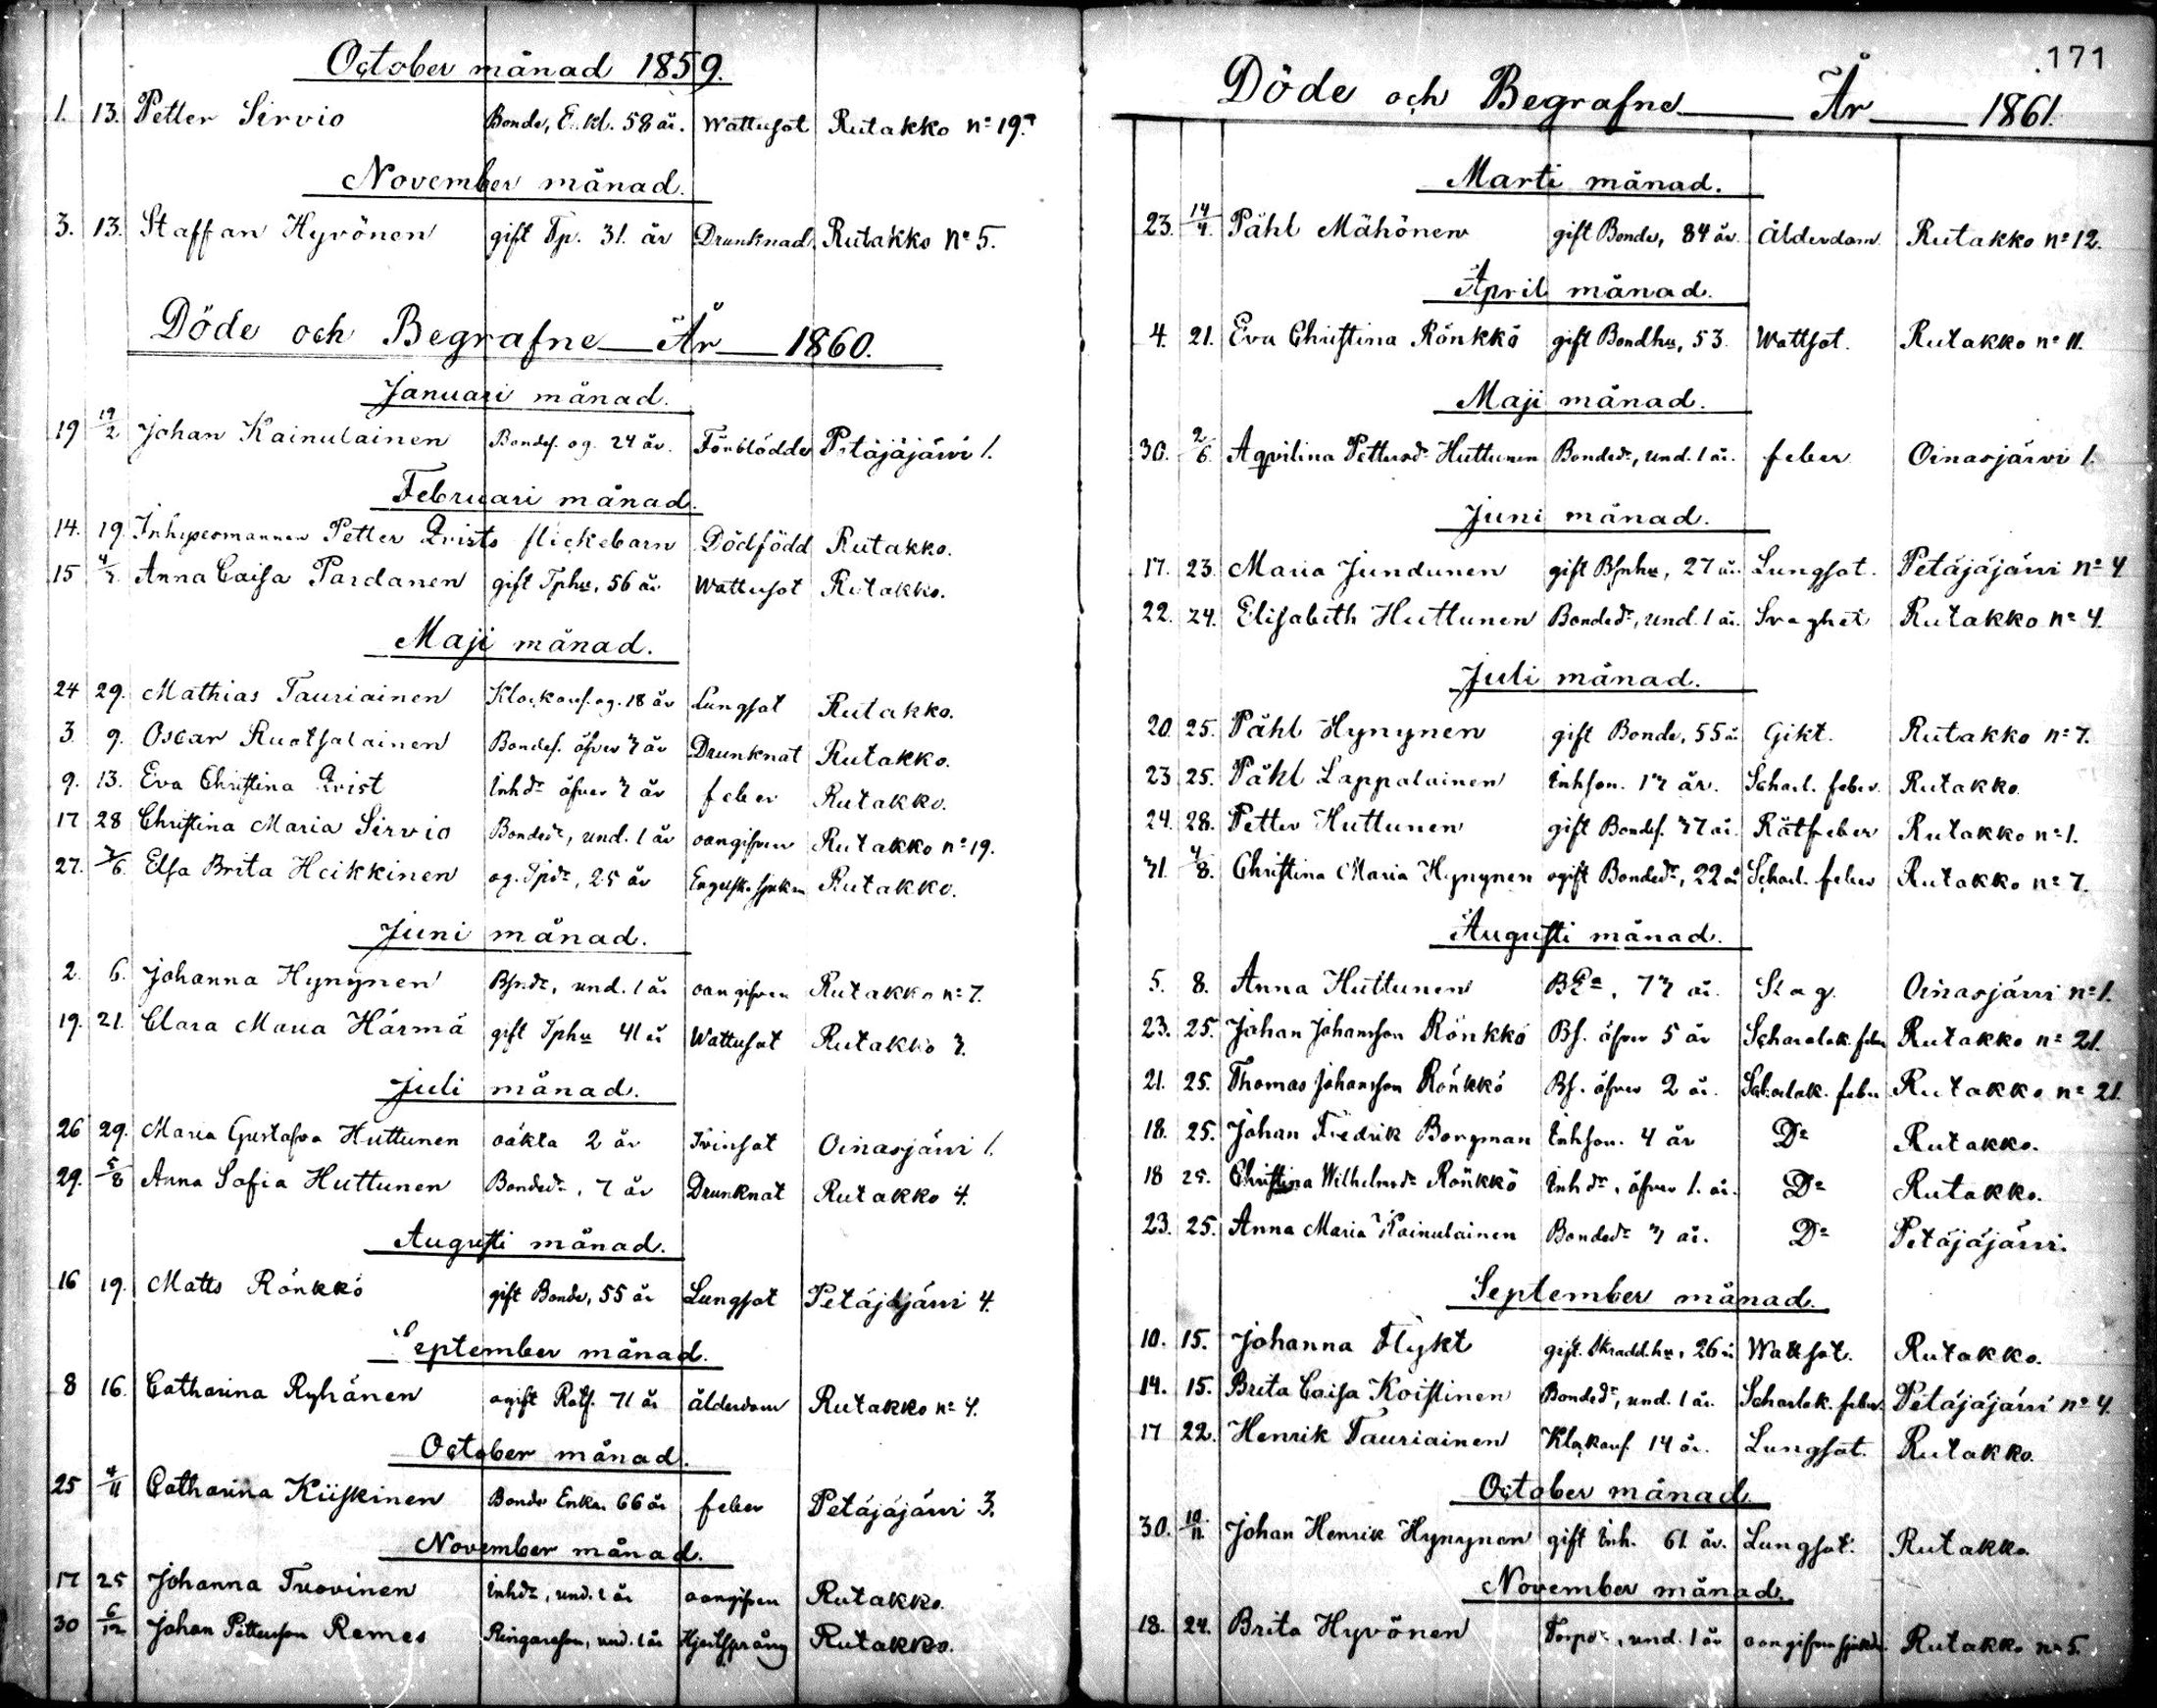 October månad 1859.
1. 13. Petter Sirvio Bonde, E. kl. 58 år. Wattusot Rutakko nº 19.
November månad.
3. 13. Staffan Hyvönen gift Tp. 31 år Drunknad Rutakko Nº 5.
Döde och Begrafne År 1860.
Januari månad.
19 19/2 Johan Kainulainen Bondes. og. 24 år. Förblödde Petäjäjärvi 1.
Februari månad.
14. 19. Petter Qvists flickebarn Dödfödd Rutakko.
15 4/3. Anna Caisa Pardanen gift Tphu, 56 år Wattusot Rutakko.
Maji månad.
24 29. Mathias Tauriainen Klockaus. og. 18 år Lungsot Rutakko.
3. 9. Oscar Ruotsalainen Bondes. öfver 3 år Drunknat Rutakko.
9. 13. Eva Christina Qvist Inhdr öfver 3 år feber Rutakko.
17 28 Christina Maria Sirvio Bondedr, und. 1 år oangifven Rutakko nº 19.
27. 3/6. Elsa Brita Heikkinen og. Tpdr, 25 år Engelsk. sjukan Rutakko.
Juni månad.
2. 6. Johanna Hynynen Bsndr, und. 1 år oangifven Rutakko nº 7.
19. 21. Clara Maria Härmä gift Tphu 41 år Wattusot Rutakko 3.
Juli månad.
26 29. Maria Gustafva Huttunen oäkta 2 år Tvinsot Oinasjärvi 1.
29. 5/8 Anna Sofia Huttunen Bondedr, 7 år Drunknat Rutakko 4.
Augusti månad.
16 19. Matts Rönkkö gift Bonde, 55 år Lungsot Petäjäjärvi 4.
September månad.
8 16. Catharina Ryhänen ogift Rotf. 71 år ålderdom Rutakko nº 4.
October månad.
25 4/11 Catharina Kiiskinen Bonde Enka 66 år feber Petäjäjärvi 3.
November månad.
17 25 Johanna Tuovinen Inhdr, und. 1 år oangifven Rutakko.
30 6/12 Johan Pettersson Remes Ringareson, und. 1 år Hjertsprång Rutakko.
171
Döde och Begrafne År 1861.
Marti månad.
23. 14/4. Påhl Mähönen gift Bonde, 84 år. Ålderdom Rutakko nº 12.
April månad.
4. 21. Eva Christina Rönkkö gift Bondhu, 53. Wattsot. Rutakko nº 11.
Maji månad.
30. 2/6. Aqvilina Pettersdr Huttunen Bondedr, und. 1 år. feber Oinasjärvi 1.
Juni månad.
17. 23. Maria Jundunen gift Bsnhu, 27 år. Lungsot. Petäjäjärvi Nº 4
22. 24. Elisabeth Huttunen Bondedr, und. 1 år. Svaghet Rutakko nº 4.
Juli månad.
20. 25. Påhl Hynynen gift Bonde, 55 år Gikt. Rutakko nº 7.
23 25. Påhl Lappalainen Inhson. 13 år. Scharl. feber. Rutakko.
24. 28. Petter Huttunen gift Bondes. 37 år. Rötfeber Rutakko nº 1.
31. 4/8. Christina Maria Hynynen ogift Bondedr, 22 år Scharl. feber Rutakko nº 7.
Augusti månad.
5. 8. Anna Huttunen 73 år. Slag. Oinasjärvi nº 1.
23. 25. Johan Johansson Rönkkö Bs. öfver 5 år Scharlak. feber Rutakko nº 21.
21. 25. Thomas Johansson Rönkkö Bs. öfver 2 år. Scharlak. feber Rutakko nº 21.
18. 25. Johan Fredrik Borgman Inhson. 4 år Dº Rutakko.
18 25. Christina Wilhelmsdr Rönkkö Inhdr, öfver 1. år. Dº Rutakko.
23. 25. Anna Maria Kainulainen Bondedr 3 år. Dº Petäjäjärvi.
September månad.
10. 15. Johanna Flykt gift. Skradd.hu, 26 år Wattsot. Rutakko.
14. 15. Brita Caisa Koistinen Bondedr, und. 1 år. Scharlak. feber. Petäjäjärvi nº 4.
17 22. Henrik Tauriainen Klokaus. 14 år. Lungsot. Rutakko.
October månad.
30. 10/11. Johan Henrik Hynynen gift Inh. 61 år. Lungsot. Rutakko.
November månad.
18. 24. Brita Hyvönen Torpdr, und. 1 år oangifven sjukd. Rutakko nº 5.